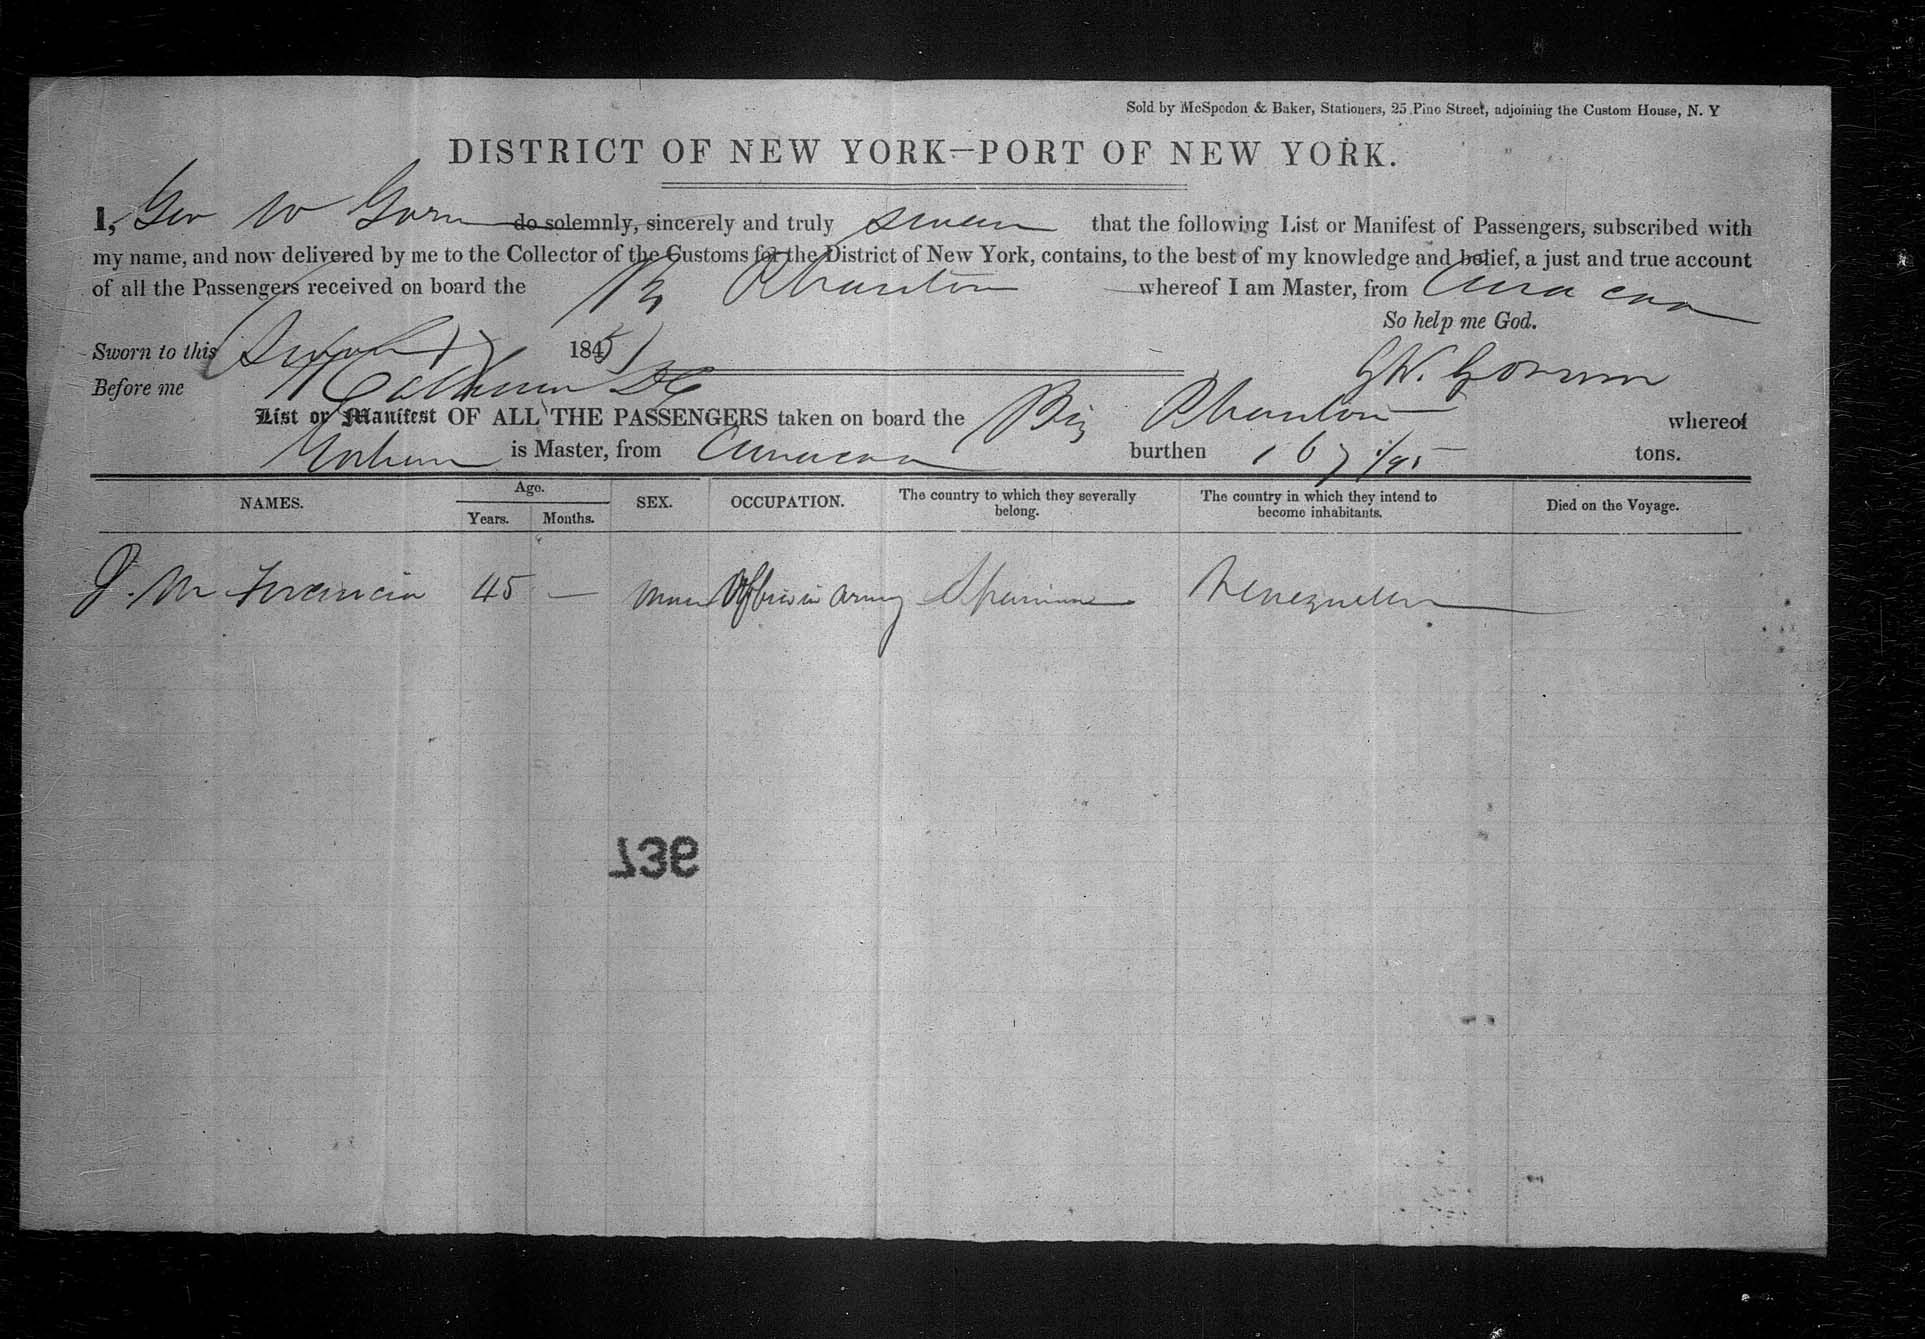 Sold by McSpedon & Baker, Stationers, 25 Pine Street, adjoining the Custom House, N. Y
DISTRICT OF NEW YORK—PORT OF NEW YORK.
I, Geo W Gorm do solemnly, sincerely and truly swear that the following List or Manifest of Passengers, subscribed with
my name, and now delivered by me to the Collector of the Customs for the District of New York, contains, to the best of my knowledge and belief, a just and true account
of all the Passengers received on board the whereof I am Master, from Curacoa
So help me God.
Sworn to this 184
Before me G W. Gorum
List or Manifest OF ALL THE PASSENGERS taken on board the Brig whereof
is Master, from Curacoa burthen 167 1/95 tons.
NAMES. Age. Years. Months. SEX. OCCUPATION. The country to which they severally belong. The country in which they intend to become inhabitants. Died on the Voyage.
J. M Francia 45 — Man Officer in army Venezuela
736